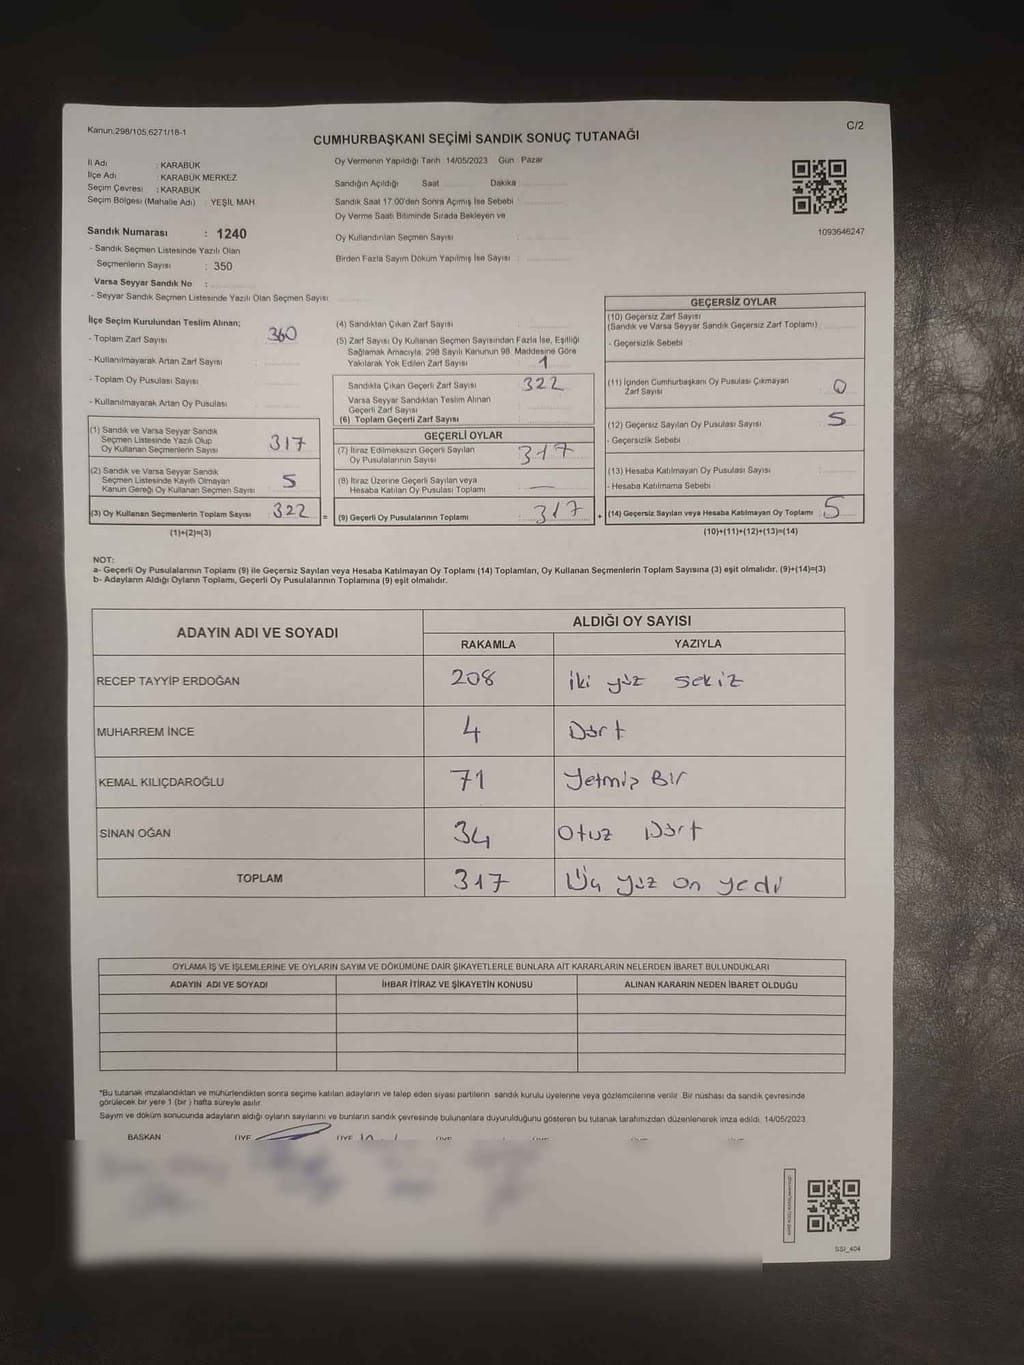 Kanun.298/105,6271/18-1
C/2
CUMHURBAŞKANI SEÇİMİ SANDIK SONUÇ TUTANAĞI
İl Adı : KARABÜK
İlçe Adı : KARABÜK MERKEZ
Seçim Çevresi : KARABÜK
Seçim Bölgesi (Mahalle Adı) : YEŞİL MAH
Sandık Numarası : 1240
- Sandık Seçmen Listesinde Yazılı Olan
Seçmenlerin Sayısı : 350
Varsa Seyyar Sandık No :
- Seyyar Sandık Seçmen Listesinde Yazılı Olan Seçmen Sayısı
Oy Vermenin Yapıldığı Tarih :14/05/2023 Gün : Pazar
Sandığın Açıldığı Saat Dakika
Sandık Saat 17.00'den Sonra Açımış İse Sebebi :
Oy Verme Saati Bitiminde Sırada Bekleyen ve
Oy Kullandırılan Seçmen Sayısı :
Birden Fazla Sayım Döküm Yapılmış İse Sayısı :
1093646247
İlçe Seçim Kurulundan Teslim Alınan;
- Toplam Zarf Sayısı 360
- Kullanılmayarak Artan Zarf Sayısı :
- Toplam Oy Pusulası Sayısı :
- Kullanılmayarak Artan Oy Pusulası :
(1) Sandık ve Varsa Seyyar Sandık
Seçmen Listesinde Yazılı Olup
Oy Kullanan Seçmenlerin Sayısı 317
(2) Sandık ve Varsa Seyyar Sandık
Seçmen Listesinde Kayıtlı Olmayan
Kanun Gereği Oy Kullanan Seçmen Sayısı 5
(3) Oy Kullanan Seçmenlerin Toplam Sayısı 322 =
(1)+(2)=(3)
(4) Sandıktan Çıkan Zarf Sayısı :
(5) Zarf Sayısı Oy Kullanan Seçmen Sayısından Fazla İse, Eşitliği
Sağlamak Amacıyla, 298 Sayılı Kanunun 98. Maddesine Göre
Yakılarak Yok Edilen Zarf Sayısı 1
Sandıkta Çıkan Geçerli Zarf Sayısı 322
Varsa Seyyar Sandıktan Teslim Alınan
Geçerli Zarf Sayısı
(6) Toplam Geçerli Zarf Sayısı
GEÇERLİ OYLAR
(7) İtiraz Edilmeksizin Geçerli Sayılan
Oy Pusulalarının Sayısı 317
(8) İtiraz Üzerine Geçerli Sayılan veya
Hesaba Katılan Oy Pusulası Toplamı —
(9) Geçerli Oy Pusulalarının Toplamı 317 +
GEÇERSİZ OYLAR
(10) Geçersiz Zarf Sayısı
(Sandık ve Varsa Seyyar Sandık Geçersiz Zarf Toplamı)
- Geçersizlik Sebebi
(11) İçinden Cumhurbaşkanı Oy Pusulası Çıkmayan
Zarf Sayısı 0
(12) Geçersiz Sayılan Oy Pusulası Sayısı 5
- Geçersizlik Sebebi
(13) Hesaba Katılmayan Oy Pusulası Sayısı
- Hesaba Katılmama Sebebi
(14) Geçersiz Sayılan veya Hesaba Katılmayan Oy Toplamı 5
(10)+(11)+(12)+(13)=(14)
NOT:
a- Geçerli Oy Pusulalarının Toplamı (9) ile Geçersiz Sayılan veya Hesaba Katılmayan Oy Toplamı (14) Toplamları, Oy Kullanan Seçmenlerin Toplam Sayısına (3) eşit olmalıdır. (9)+(14)=(3)
b- Adayların Aldığı Oyların Toplamı, Geçerli Oy Pusulalarının Toplamına (9) eşit olmalıdır.
ADAYIN ADI VE SOYADI
ALDIĞI OY SAYISI
RAKAMLA YAZIYLA
RECEP TAYYİP ERDOĞAN 208 İki yüz sekiz
MUHARREM İNCE 4 Dört
KEMAL KILIÇDAROĞLU 71 Yetmiş Bir
SİNAN OĞAN 34 Otuz Dört
TOPLAM 317 Üç yüz on yedi
OYLAMA İŞ VE İŞLEMLERİNE VE OYLARIN SAYIM VE DÖKÜMÜNE DAİR ŞİKAYETLERLE BUNLARA AİT KARARLARIN NELERDEN İBARET BULUNDUKLARI
ADAYIN ADI VE SOYADI İHBAR İTİRAZ VE ŞİKAYETİN KONUSU ALINAN KARARIN NEDEN İBARET OLDUĞU
*Bu tutanak imzalandıktan ve mühürlendikten sonra seçime katılan adayların ve talep eden siyasi partilerin sandık kurulu üyelerine veya gözlemcilerine verilir. Bir nüshası da sandık çevresinde
görülecek bir yere 1 (bir ) hafta süreyle asılır.
Sayım ve döküm sonucunda adayların aldığı oyların sayılarını ve bunların sandık çevresinde bulunanlara duyurulduğunu gösteren bu tutanak tarafımızdan düzenlenerek imza edildi. 14/05/2023
BAŞKAN
SSI_404